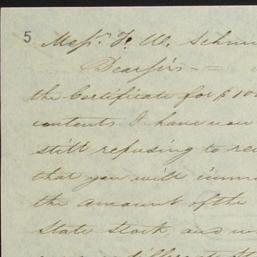 5
Messrs. F. W. Schm
Dear Sirs —
the Certificate for $ 100
contents I have now
still refusing to re
that you will imm
the amount of the
State Stock, and